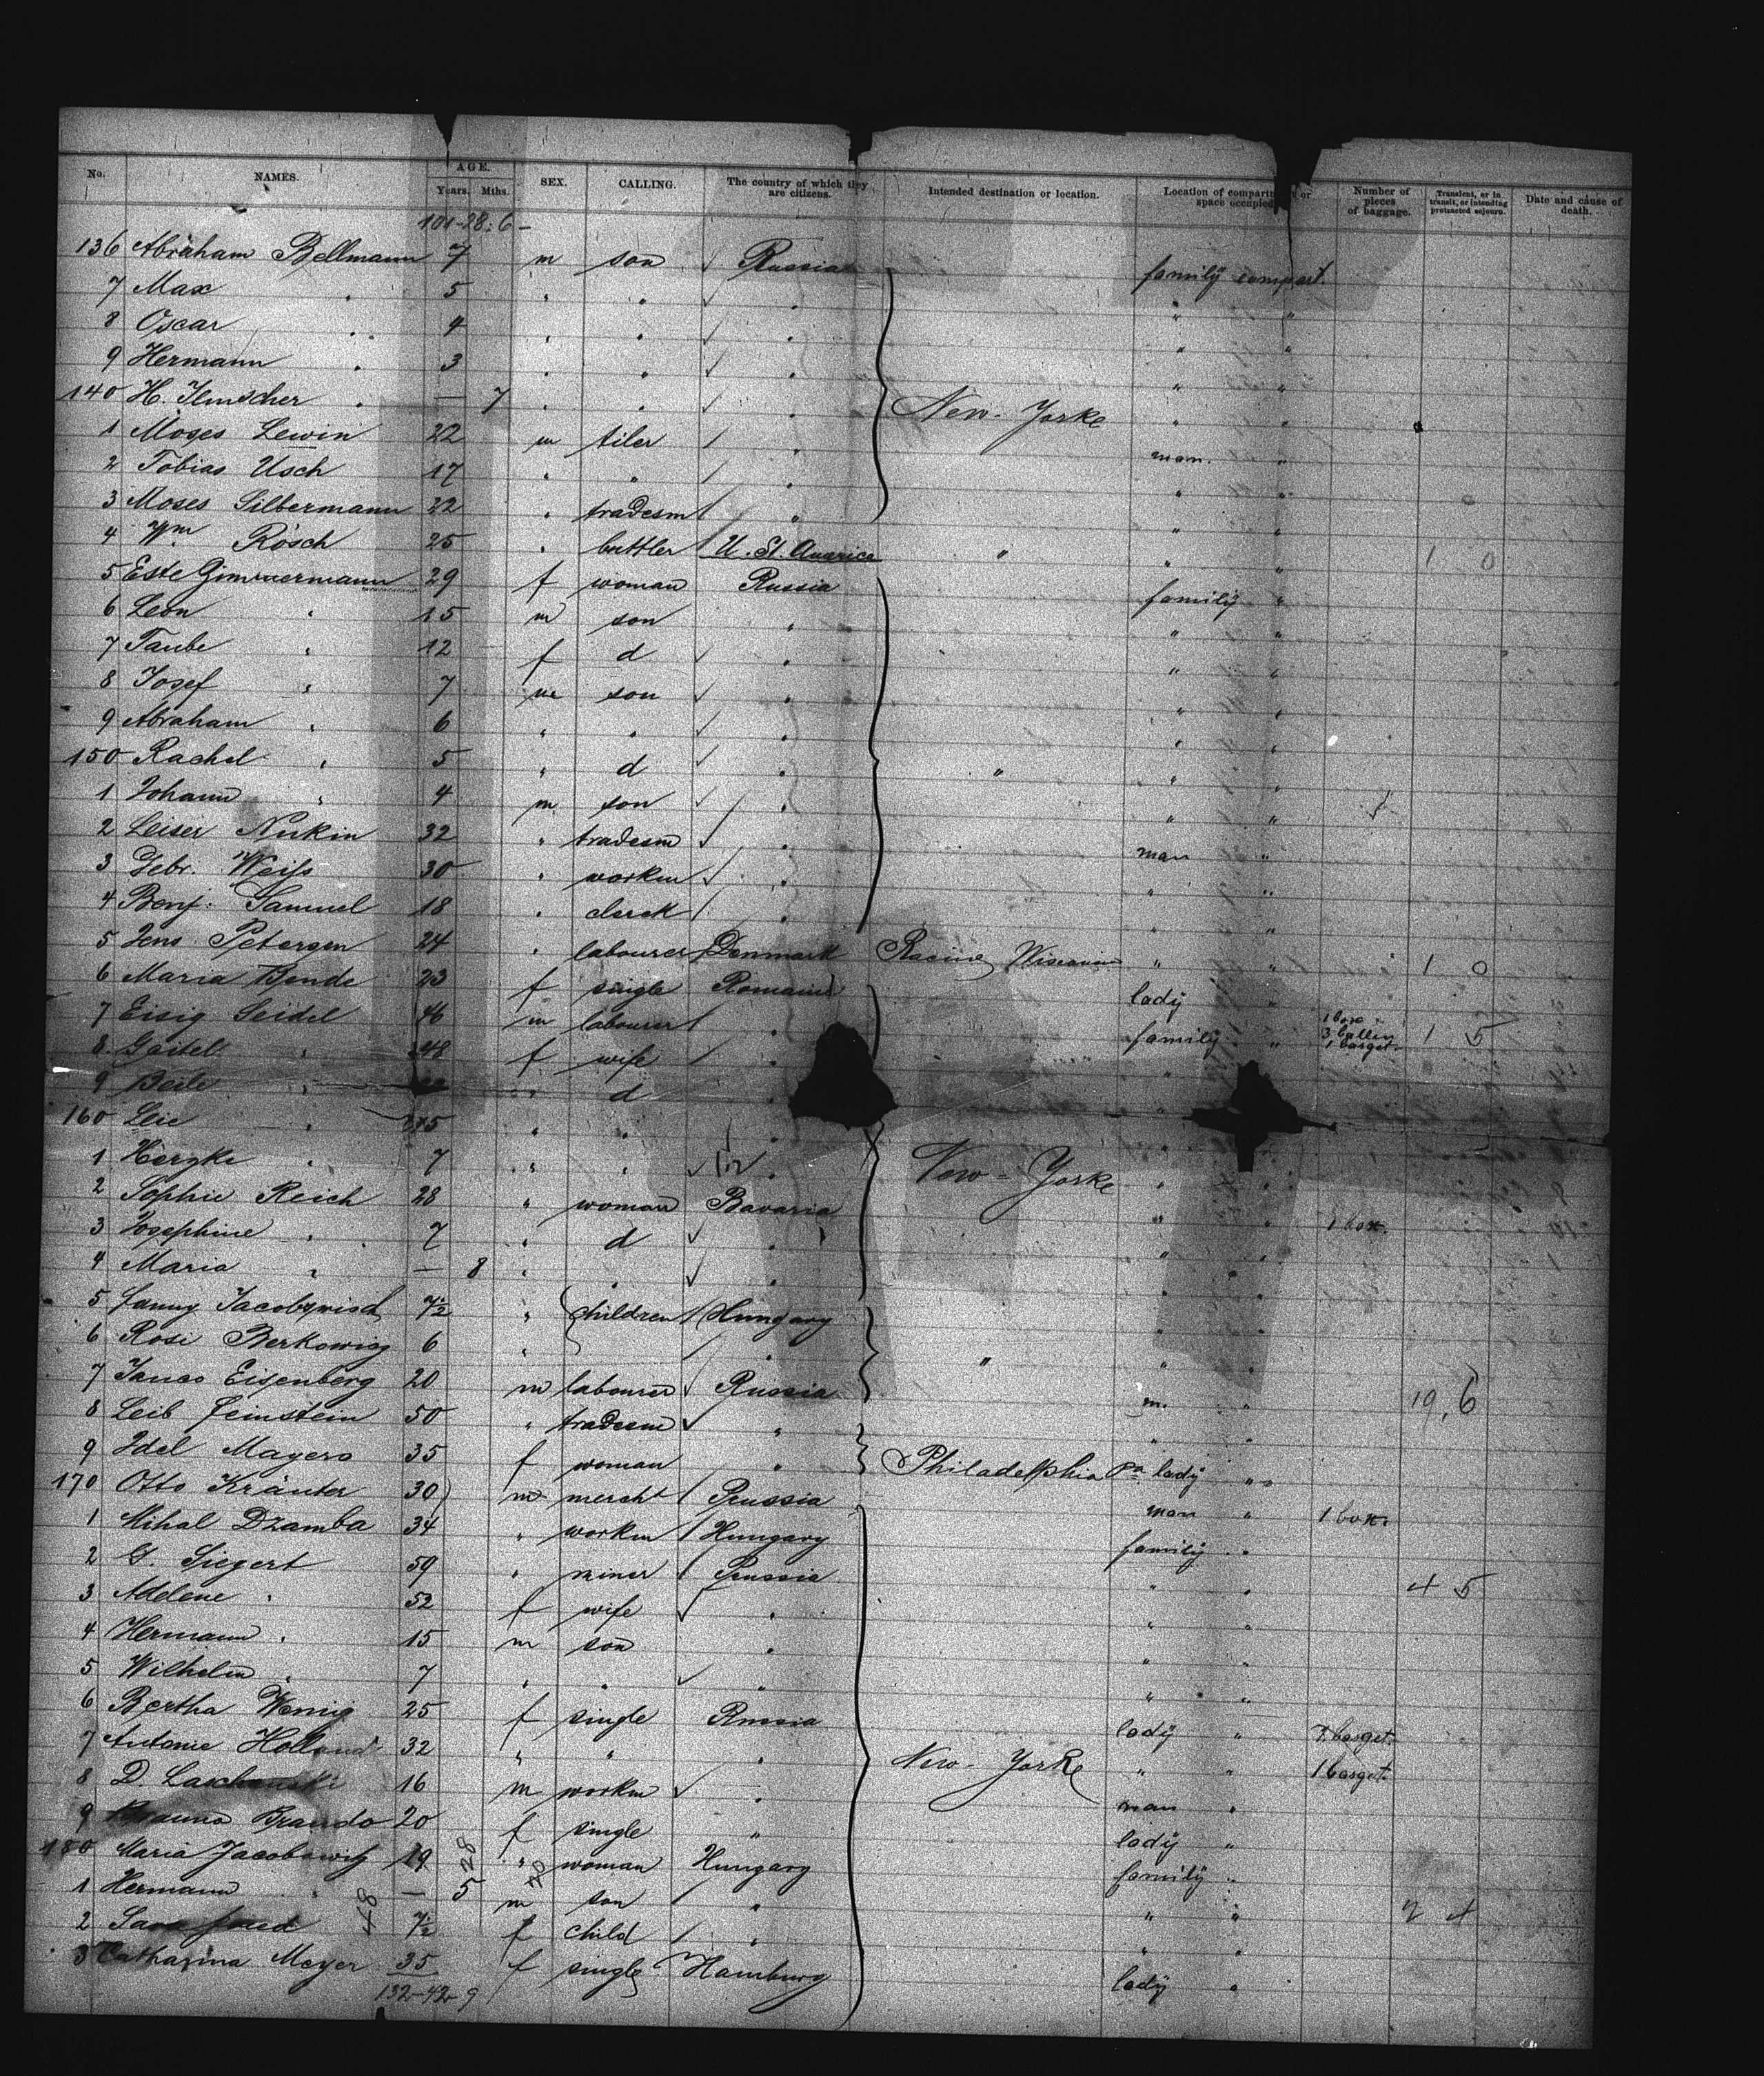 No. NAMES. AGE. Years. Mths. SEX. CALLING. The country of which they are citizens. Intended destination or location. Location of compartments or space occupied Number of pieces of baggage. Transient, or in transit, or intending protracted sojourn. Date and cause of death.
101-28:6-
136 Abraham Bellmann 7 m son ✓ Russia family compart.
7 Max " 5 " " ✓ " " "
8 Oscar " 4 " " ✓ " " "
9 Hermann " 3 " " ✓ " " "
140 H. Ilmscher " — 7 " " ✓ " New-Yorke " "
1 Moses Lewin 22 m tiler / " man. "
2 Tobias Usch 17 " " / " " "
3 Moses Silbermann 22 " tradesm / " " "
4 Wm Rösch 25 " buttler / U. St. America " " " 1 0
5 Este Gimmermann 29 f woman Russia family "
6 Leon " 15 m son " " "
7 Taube " 12 f d ✓ " " "
8 Josef " 7 m son ✓ " " "
9 Abraham " 6 " " ✓ " " "
150 Rachel " 5 " d ✓ " " " "
1 Johann " 4 m son ✓ " " "
2 Leiser Nukin 32 " tradesm ✓ " man "
3 Gebr. Weifs 30 " workm ✓ " " "
4 Benj. Samuel 18 " clerck / " " "
5 Jens Petersen 24 " labourer / Denmark Racine " " 1 0
6 Maria Bende 23 f single Romania lady "
7 Eisig Seidel 46 m labourer / " family " 1 box 3 ballen 1 basget. 1 5
8 Gostel " 48 f wife / " "
9 Beile " " d "
160 Leie " " " / " " "
1 Herzke " 7 " " ✓ " New-Yorke " "
2 Sophie Reich 28 " woman Bavaria " " 1 box.
3 Josephine " 7 " d ✓ " " "
4 Maria " — 8 " " ✓ " "
5 Fanny 7½ " children / Hungary " "
6 Rosi Berkowicz 6 " / " " " "
7 Janco Eisenberg 20 m labourer ✓ Russia m. " 19, 6
8 Leib Feinstein 50 " tradesm ✓ " " "
9 Idel Mayers 35 f woman " Philadelphia Pa lady "
170 Otto Kräuter 30 m mercht / Prussia man " 1 box.
1 Mihal Dzamba 34 " workm / Hungary family "
2 G. Siegert 59 " miner / Prussia " " 4 5
3 Adelene " 52 f wife ✓ " " "
4 Hermann " 15 m son " " "
5 Wilhelm " 7 " " ✓ " " "
6 Bertha Wenig 25 f single Russia lady " basget.
7 Antonie Holland 32 " " " New-York " " 1 basget.
8 D. 16 m workm ✓ " man "
9 Brando 20 f single " lady "
180 Maria Jacobowitz 19 " woman Hungary family "
1 Hermann " — 5 m son / " " " 2 4
2 7½ f child / " " "
3 Catharina Meyer 35 f single Hamburg lady "
48
28
20
132-42-9